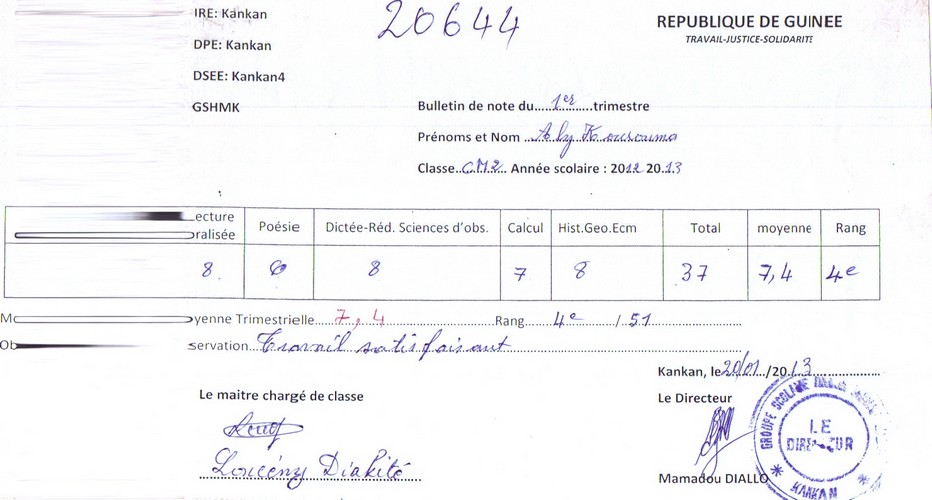 IRE: Kankan
20644
REPUBLIQUE DE GUINEE
TRAVAIL-JUSTICE-SOLIDARITE
DPE: Kankan
DSEE: Kankan4
GSHMK
Bulletin de note du.....1er.....trimestre
Prénoms et Nom ...Aly Kourouma
Classe..CM2... Année scolaire : 2012 20.13
ecture
ralisée
Poésie
Dictée-Réd. Sciences d'obs.
Calcul
Hist.Geo.Ecm
Total
moyenne
Rang
8 6 8 7 8 37 7,4 4e
M yenne Trimestrielle....7,4....Rang....4e..../.51....
Ob servation..Travail satisfaisant
Kankan, le 20/01.../20.13
Le maitre chargé de classe
Le Directeur
Diakité
Mamadou DIALLO
GROUPE SCOLAIRE
LE
DIRECTEUR
KANKAN